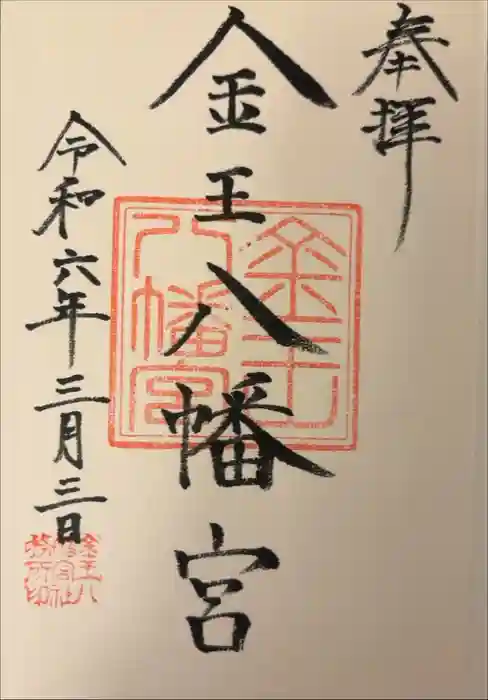 奉拝
金王八幡宮
令和六年三月三日
金王
八幡宮
金王八
幡宮社
務所印